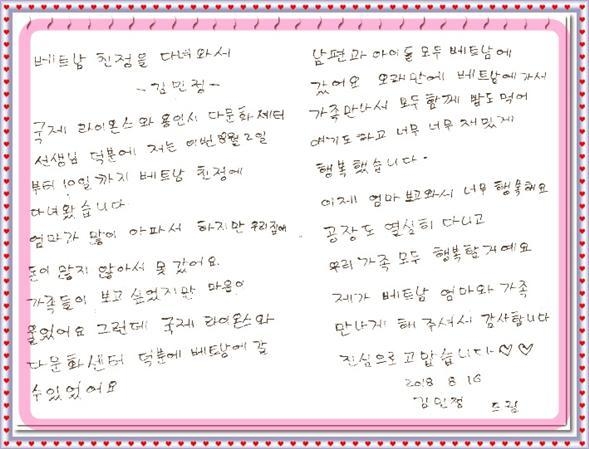 베트남 친정을 다녀와서
- 김민정 -
국제 라이온스와 용인시 다문화 세터
선생님 덕분에 저는 이번 8월 2일
부터 10일 까지 베트남 친정에
다녀왔습니다
엄마가 많이 아파서 하지만 우리집에
돈이 많지 않아서 못 갔어요.
가족들이 보고 싶었지만 마음이
울었어요 그런데 국제 라이온스와
다문화센터 덕분에 베트남에 갈
수 있었어요
남편과 아이들 모두 베트남에
갔어요 오래만에 베트남에 가서
가족만나서 모두 함께 밥도 먹어
얘기도 하고 너무 너무 재밌게
행복했습니다.
이제 엄마 보고와서 너무 행복해요
공장도 열심히 다니고
우리 가족 모두 행복할거예요
제가 베트남 엄마와 가족
만나게 해 주셔서 감사합니다
진심으로 고맙습니다 ♡♡
2018 8 16
김민정 드림